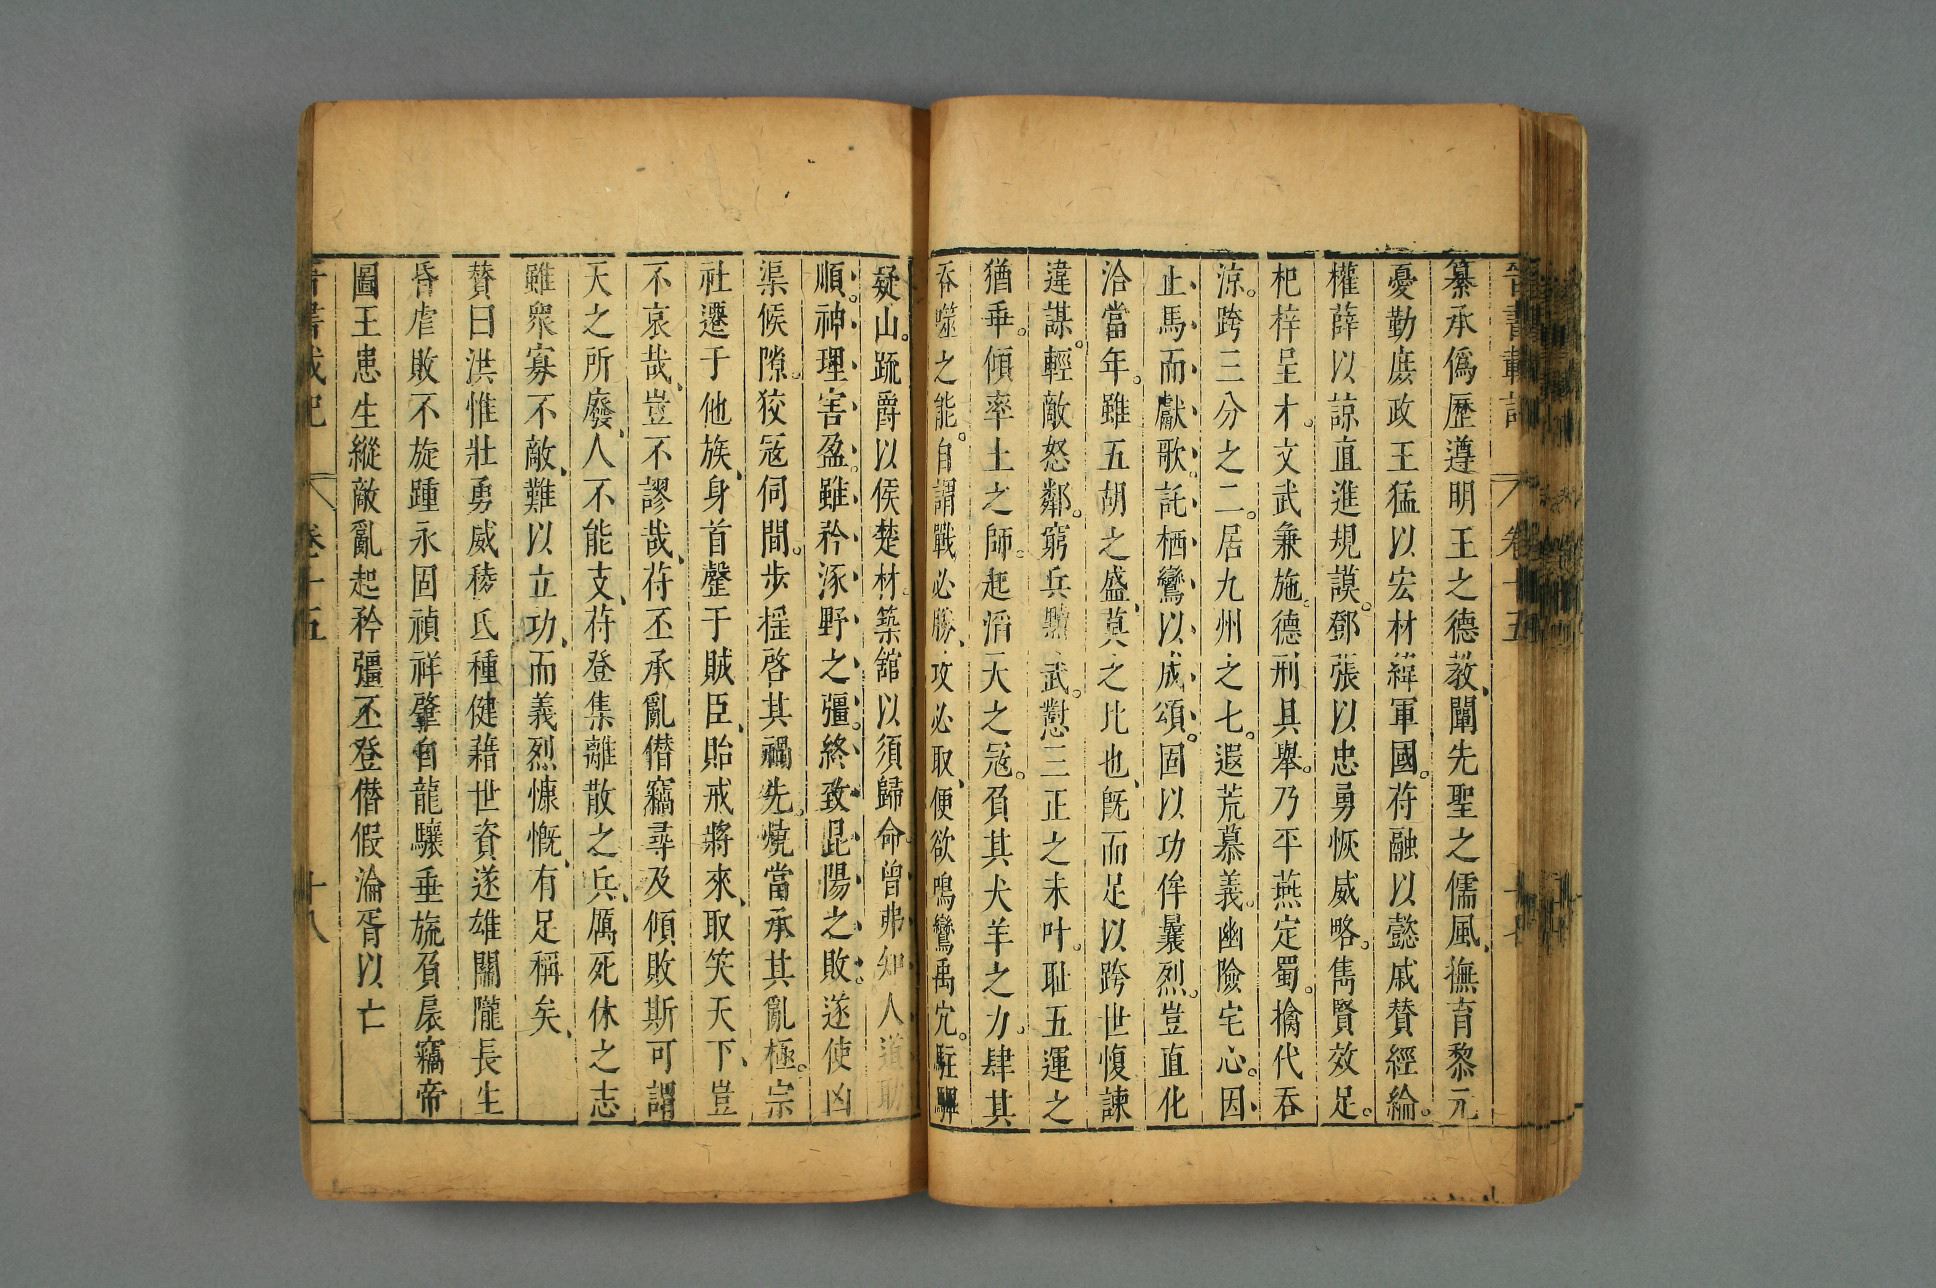 晉書載記 卷十五
纂承僞歷遵明王之德教闡先聖之儒風撫育黎元
憂勤庶政王猛以宏材緯軍國苻融以懿戚贊經綸
權薛以諒直進規謨鄧張以忠勇恢威略雋賢效足
杞梓呈才文武兼施德刑具舉乃平燕定蜀擒代吞
涼跨三分之二居九州之七遐荒慕義幽險宅心因
止馬而獻歌託栖鸞以成頌固以功侔曩烈豈直化
洽當年雖五胡之盛莫之比也旣而足以跨世愎諫
違謀輕敵怒鄰窮兵黷武懟三正之未叶耻五運之
猶乖傾率土之師起滔天之寇負其犬羊之力肆其
吞噬之能自謂戰必勝攻必取便欲鳴鸞禹穴駐驆
疑山疏爵以侯楚材築舘以須歸命曾弗知人道助
順神理害盈雖矜涿野之彊終致昆陽之敗遂使凶
渠候隙狡寇伺間步搖啓其禍先燒當承其亂極宗
社遷于他族身首罄于賊臣貽戒將來取笑天下豈
不哀哉豈不謬哉苻丕承亂僣竊尋及傾敗斯可謂
天之所廢人不能支苻登集離散之兵厲死休之志
雖衆寡不敵難以立功而義烈慷慨有足稱矣
贊曰洪惟壯勇威稜氐種健藉世資遂雄關隴長生
昏虐敗不旋踵永固禎祥肇自龍驤垂旒負扆竊帝
圖王患生縱敵亂起矜彊丕登僣假淪胥以亡
晉書載記 卷十五 十八